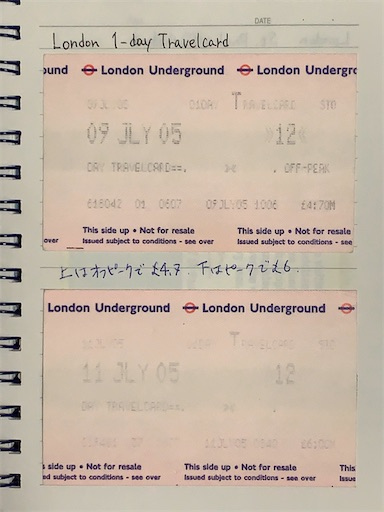 DATE
London 1-day Travelcard
ound London Underground London Undergro
09JLY05 01DAY TRAVELCARD STD
09 JLY 05 12
DAY TRAVELCARD==. OFF-PEAK
0607 09JLY05 1006 £4.70M
This side up • Not for resale This side up • Not for resale
over Issued subject to conditions - see over Issued subject to conditions - see
上はオフピークで£4.7. 下はピークで£6.
London Underground London Underground
TRAVELCARD
11 JLY 05 12
DAY TRAVELCARD==.
11JLY05 0840
s side up • Not for resale This side up • Not for resale This
ed subject to conditions - see over Issued subject to conditions - see over Issu